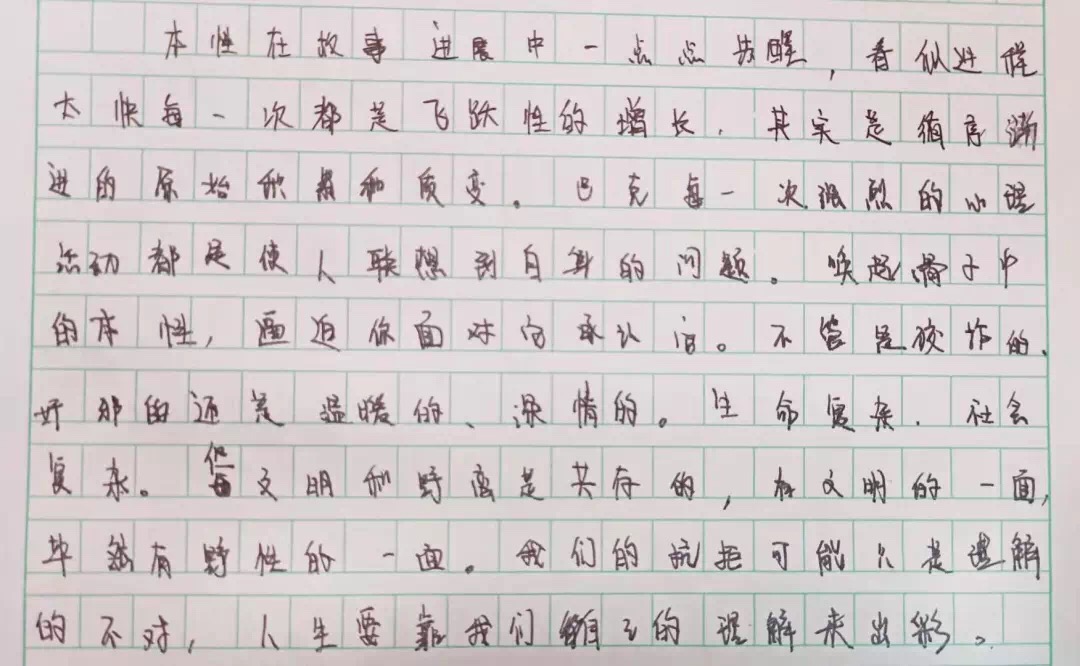 本性在故事进展中一点点苏醒，看似进程
太快每一次都是飞跃性的增长．其实是循序渐
进的原始积累和质变。巴克每一次强烈的心理
活动都是使人联想到自身的问题。唤起骨子中
的本性，逼迫你面对它承认它。不管是狡诈的、
奸邪的还是温暖的、深情的。生命复杂．社会
复杂。但文明和野蛮是共存的，有文明的一面，
毕然有野性的一面。我们的抗拒可能只是理解
的不对，人生要靠我们自己的理解来出彩。